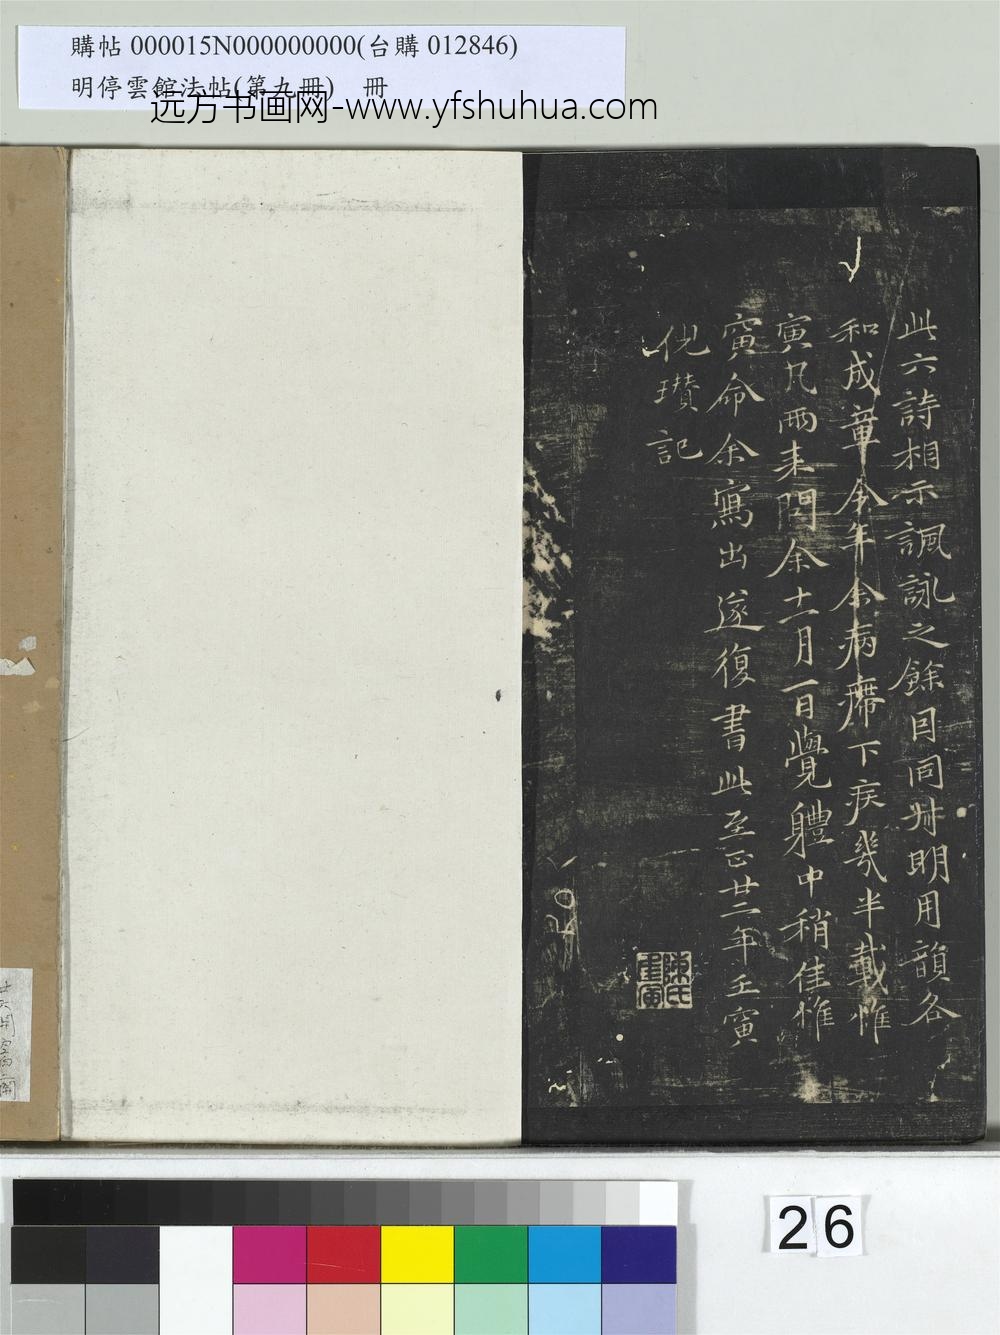 購帖 000015N000000000(台購 012846)
明停雲館法帖(第九冊) 冊
远方书画网-www.yfshuhua.com
此六詩相示諷詠之餘目同卅明用韻各
和成章今年余病滯下疾幾半載惟
寅凡兩来問余十二月一日覺體中稍佳惟
寅命余寫出遂復書此至正廿二年壬寅
倪瓚記
陳氏
惟寅
26